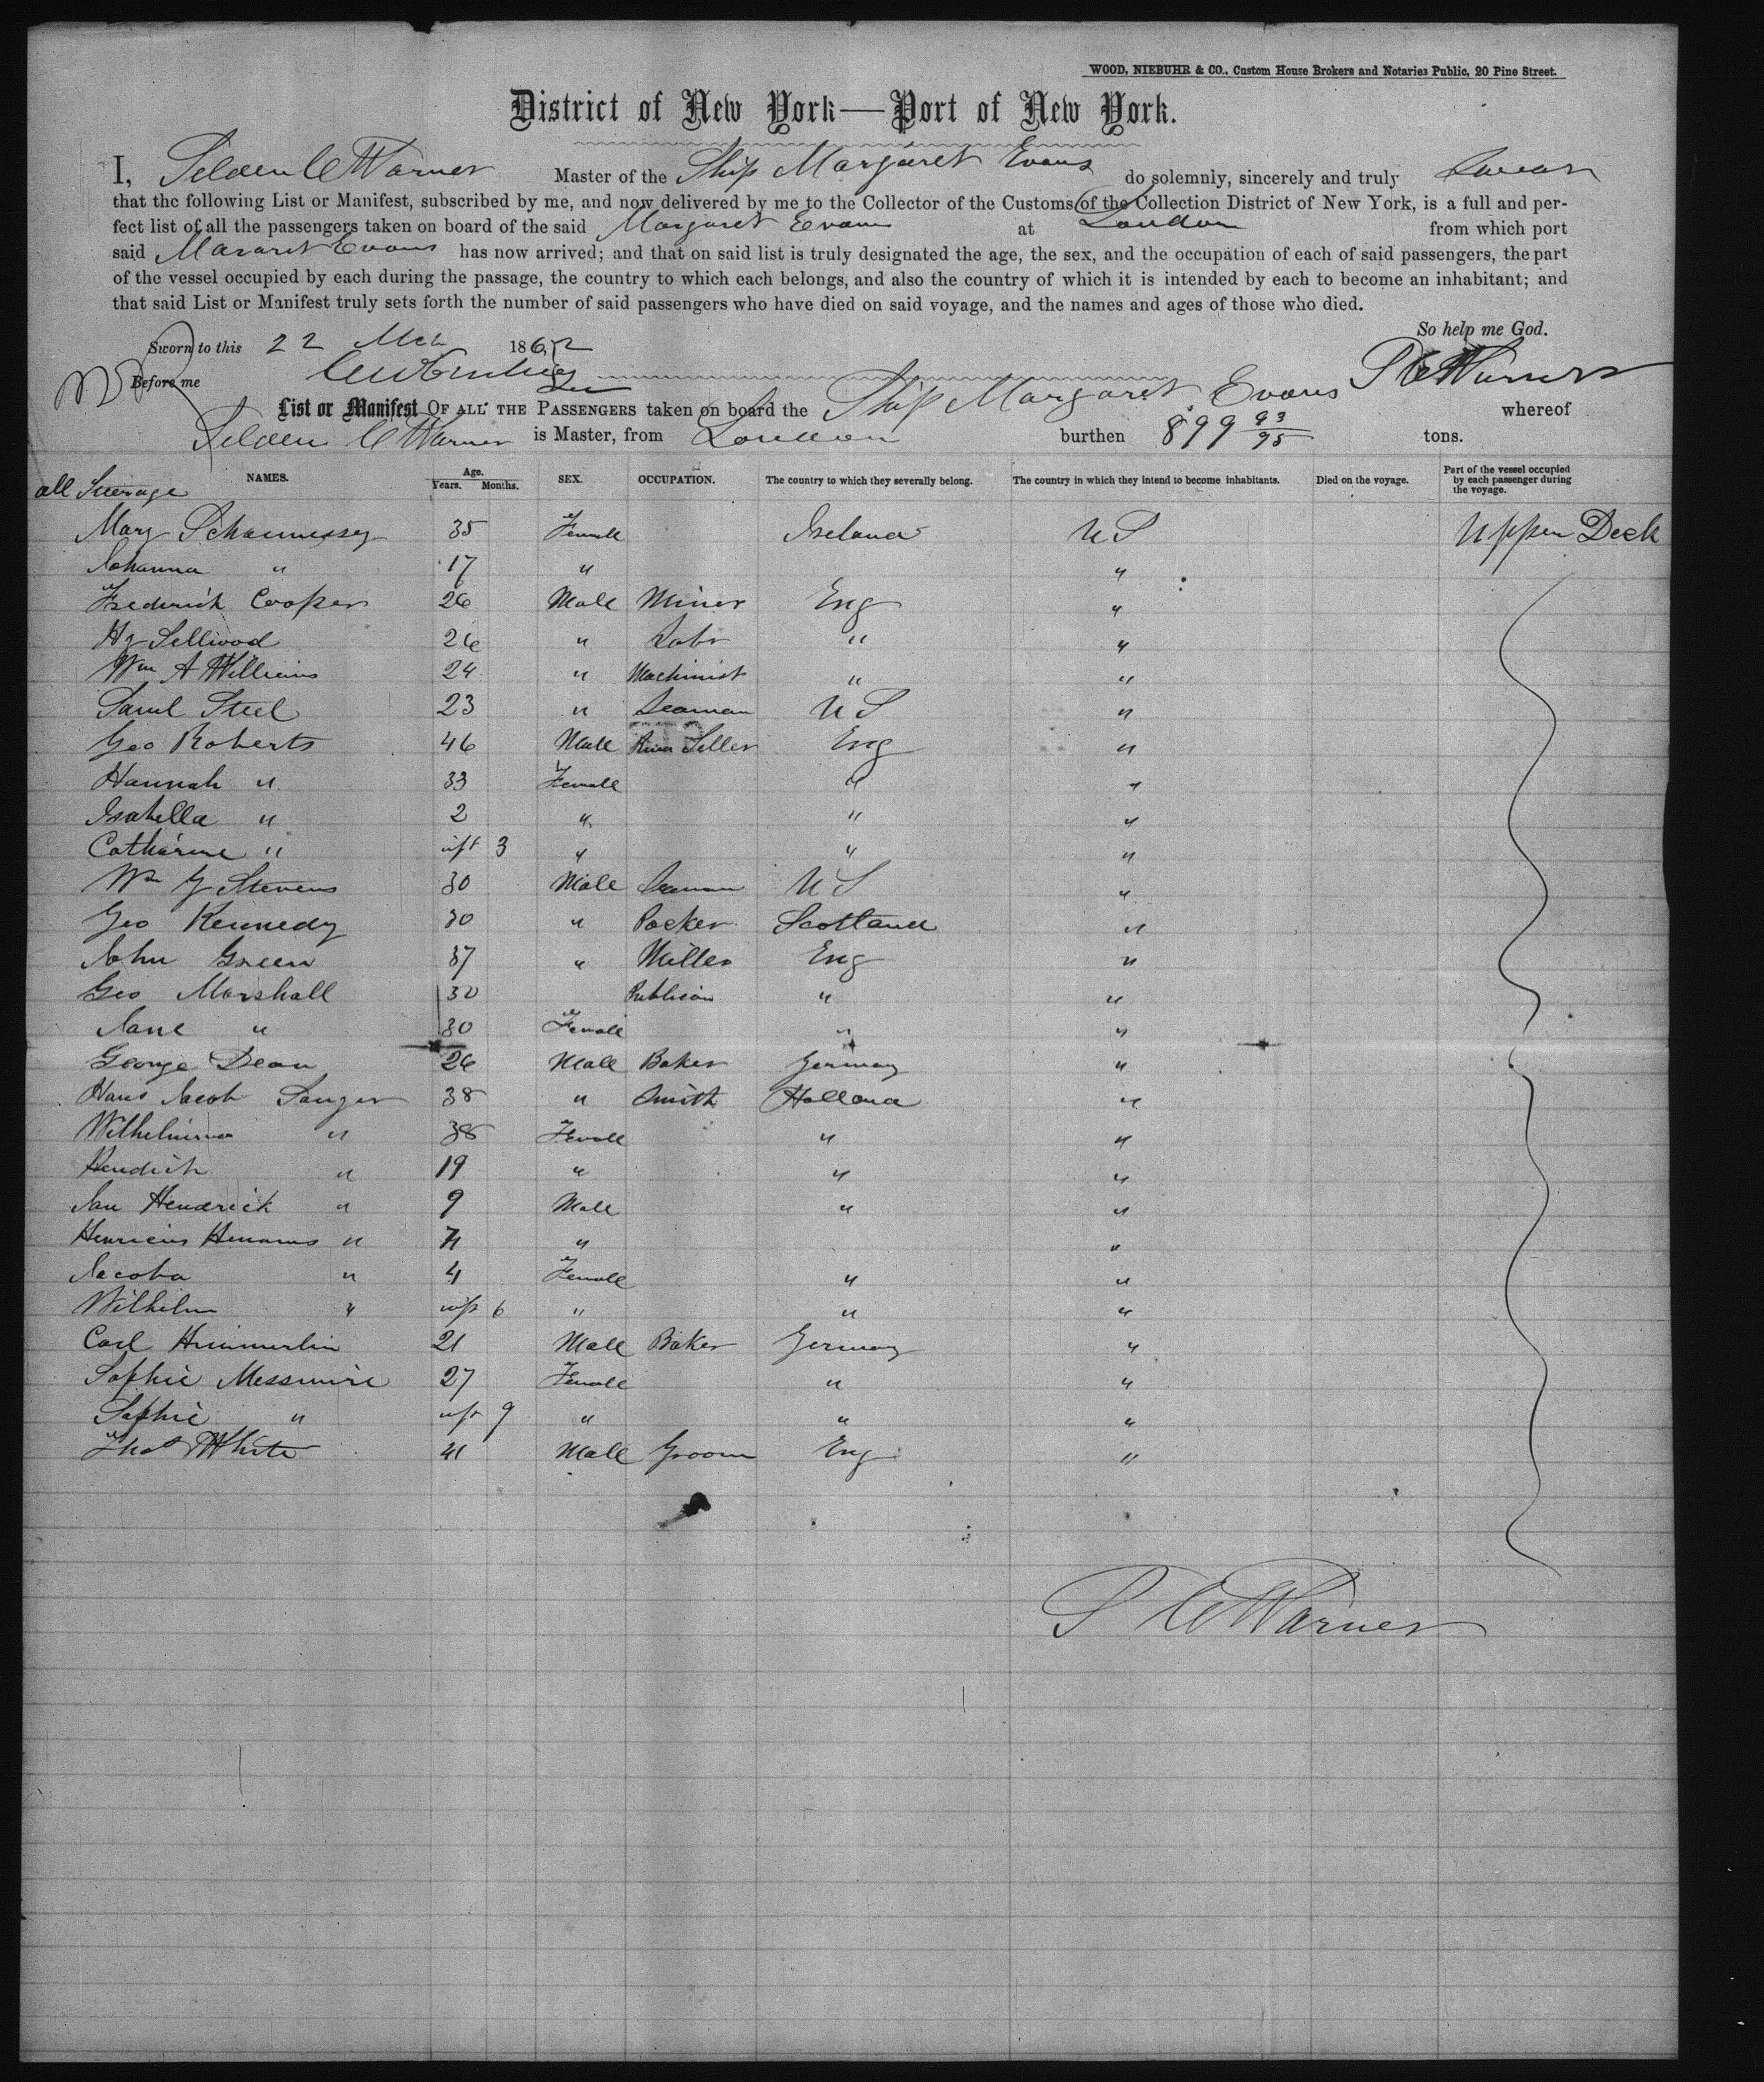 WOOD, NIEBUHR & CO., Custom House Brokers and Notaries Public, 20 Pine Street.
District of New York—Port of New York.
I, Selden C Warner Master of the Ship Margaret Evans do solemnly, sincerely and truly Swear
that the following List or Manifest, subscribed by me, and now delivered by me to the Collector of the Customs of the Collection District of New York, is a full and per-
fect list of all the passengers taken on board of the said Margaret Evans at London from which port
said Margaret Evans has now arrived; and that on said list is truly designated the age, the sex, and the occupation of each of said passengers, the part
of the vessel occupied by each during the passage, the country to which each belongs, and also the country of which it is intended by each to become an inhabitant; and
that said List or Manifest truly sets forth the number of said passengers who have died on said voyage, and the names and ages of those who died.
So help me God.
Sworn to this 22 Mch 1862
Before me S C Warner
List or Manifest OF ALL THE PASSENGERS taken on board the Ship Margaret Evans whereof
Selden C Warner is Master, from London burthen 899 93/95 tons.
NAMES. Age. Years. Months. SEX. OCCUPATION. The country to which they severally belong. The country in which they intend to become inhabitants. Died on the voyage. Part of the vessel occupied by each passenger during the voyage.
all Steerage
Mary Schaunessey 35 Female Ireland U S Upper Deck
Johanna " 17 " "
Frederick Cooper 26 Male Miner Eng "
Hy Sellwood 26 " Labr " "
Wm A Williams 24 " Machinist " "
Saml Steel 23 " Seaman U S "
Geo Roberts 46 Male Seller Eng "
Hannah " 33 Female " "
Isabella " 2 " " "
Catharine " inft 3 " " "
Wm G Stevens 30 Male Seaman U S "
Geo Kennedy 30 " Packer Scotland "
John Green 37 " Miller Eng "
Geo Marshall 30 Publican " "
Jane " 30 Female " "
George Dean 26 Male Baker Germany "
Hans Jacob Sanger 38 " Smith Holland "
Wilhelmina " 38 Female " "
Hendrik " 19 " " "
Jan Hendrick " 9 Male " "
Henricus " 7 " "
Jacoba " 4 Female " "
Wilhelm " inft 6 " " "
Carl Himmerlin 21 Male Baker Germany "
Sophie Messmire 27 Female " "
Sophie " inft 9 " " "
Thos White 41 Male Groom Eng "
S C Warner